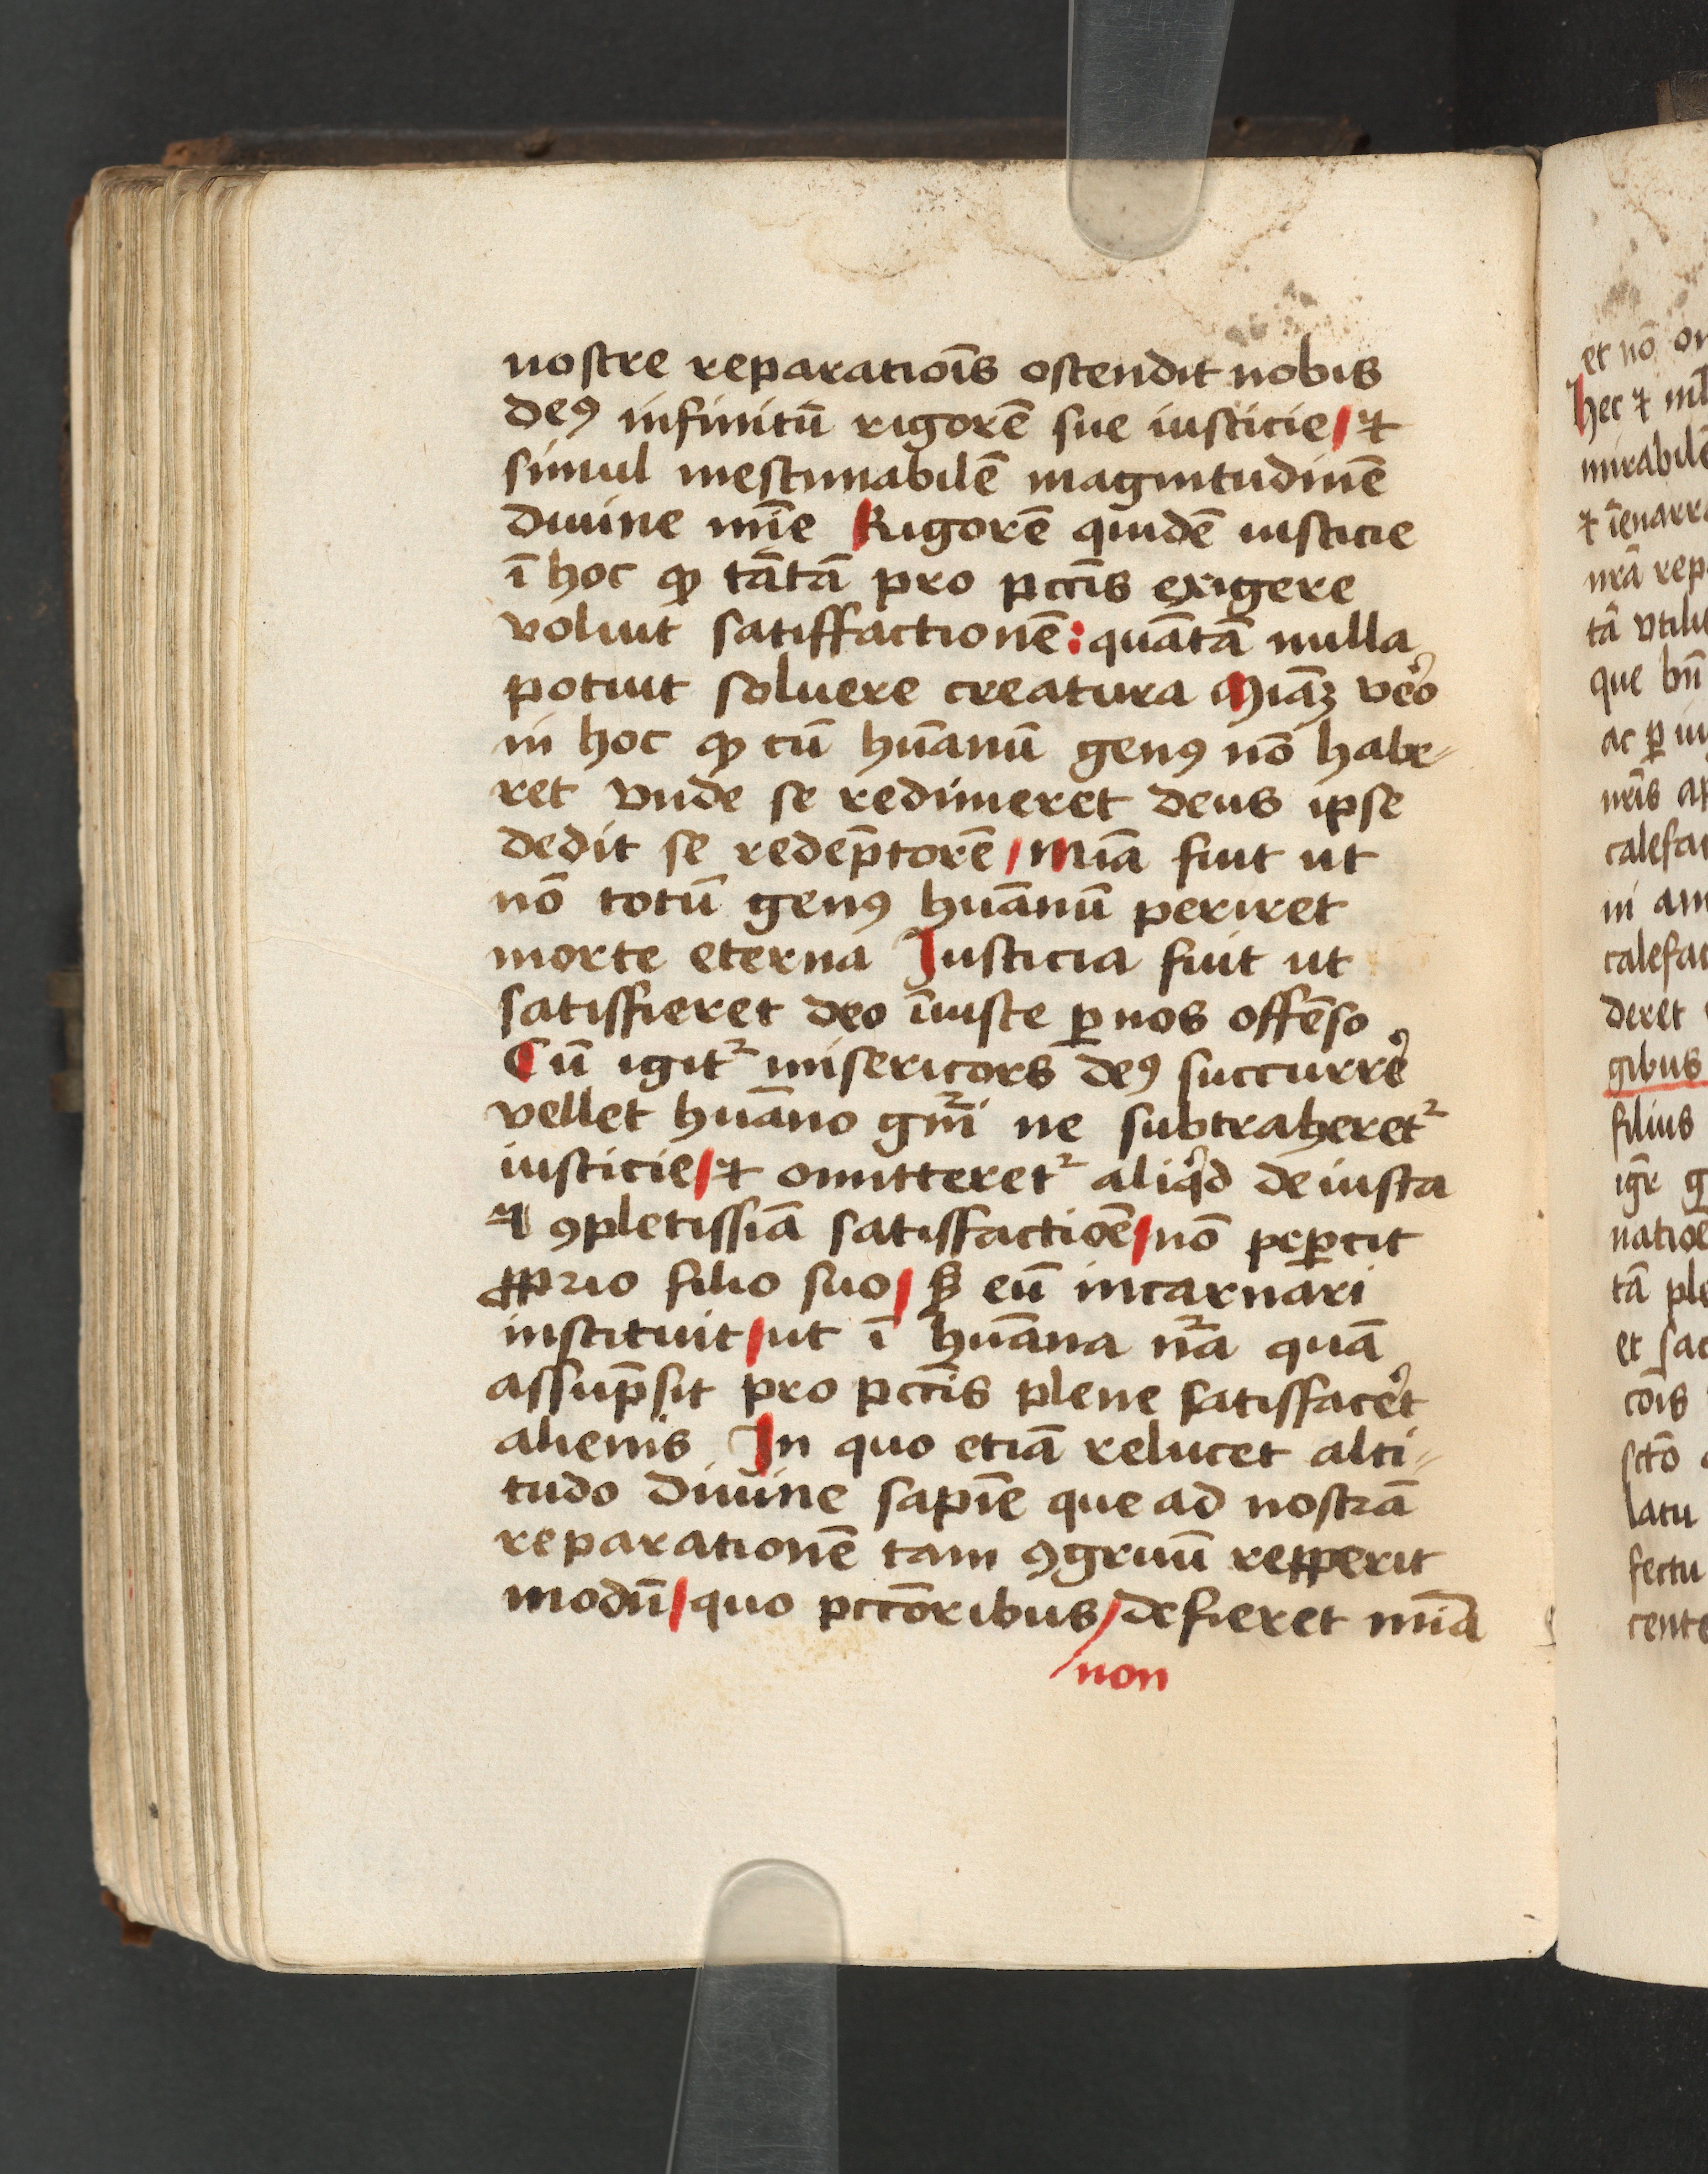 nostre reparatiōis ostendit nobis
deꝰ infinitū rigorē sue iusticie / ⁊
simul inestimabilē magnitudinē
diuine mīe Rigorē quidē iusticie
ī hoc ꝙ tātā pro pctīs exigere
voluit satiffactionē : quātā nulla
potuit soluere creatura Miāꝫ vero
in hoc ꝙ cū hūanū genꝰ nō habe⸗
ret vnde se redimeret deus ipse
dedit se redēptorē / Mia̅ fuit ut
nō totū genꝰ huānū periret
morte eterna Iusticia fuit ut
satisfieret deo īiuste ꝑ nos offēso
Cū igit᷑ misericors deꝰ succurre᾽
vellet huāno gn̄i ne subtraheret᷑
iusticie / ⁊ omitteret᷑ aliqͥd de iusta
⁊ ꝯpletissiā satisfactiōe / nō peꝑcit
ꝓprio filio suo / sꝫ eū incarnari
instituit / ut ī huāna nᷓa quā
assūpsit pro pctīs plene satisface᾽t
alienis In quo etiā relucet alti⸗
tudo diuine sapīe que ad nostrā
reparationē tam ꝯgruū repperit
modū / quo pctōribus / defieret mīa
/ non
et nō
hec ⁊
mirabilē
⁊
nrā
tā
que bn̄
ac ꝑ
nrīs
in
deret
gibus
filius
igr̄
tā
et
cōis